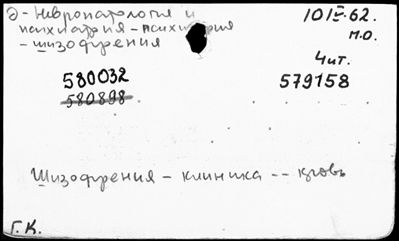 Э - невропатология и
психиатрия - психиатрия
- шизофрения
101 IV. 62.
м.о.
Чит.
580032
580898
579158
Шизофрения - клиника -- кровь
Г.К.